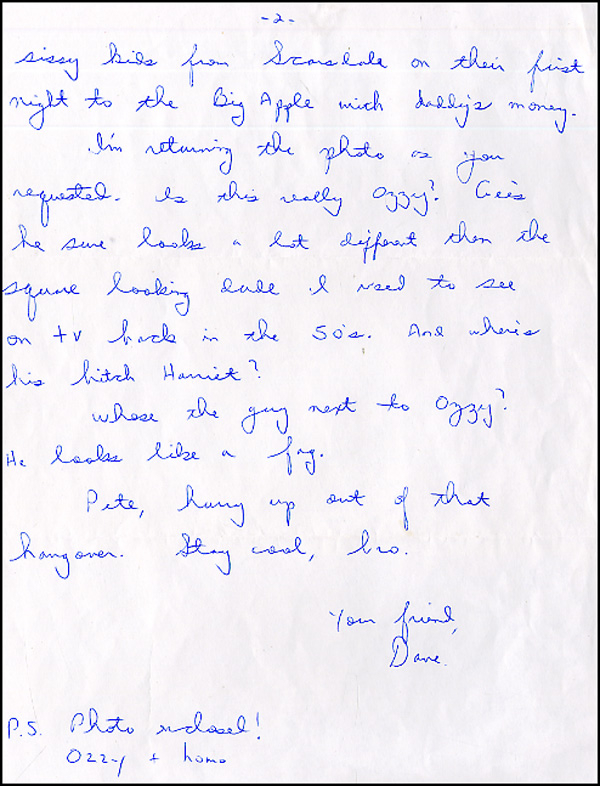 -2-
sissy kids from Scarsdale on their first
night to the Big Apple with daddy's money.
I'm returning the photo as you
requested. Is this really Ozzy? Gee's
he sure looks a lot different then the
square looking dude I used to see
on tv back in the 50's. And where's
his bitch Harriet?
Whose the guy next to Ozzy?
He looks like a fag.
Pete, hurry up out of that
hangover. Stay cool, bro.
Your friend,
Dave.
P.S. Photo enclosed!
Ozzy + homo